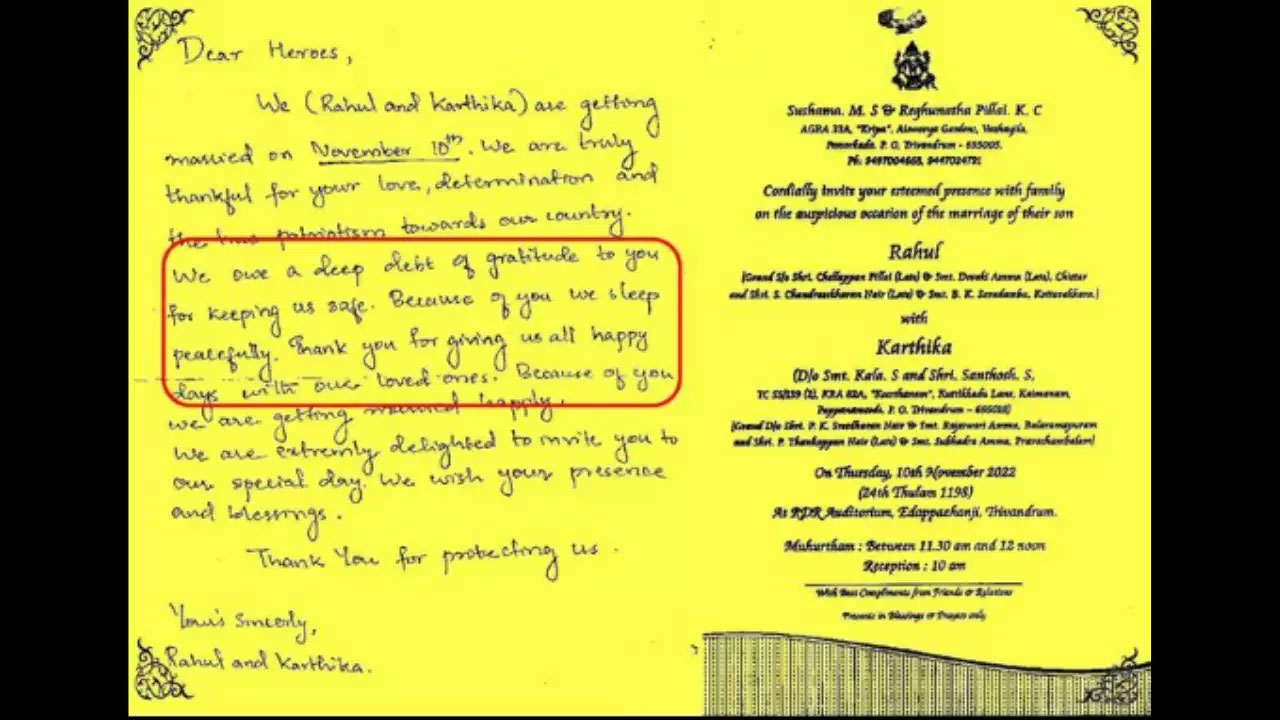 Dear Heroes,
We (Rahul and Karthika) are getting
married on November 10th. We are truly
thankful for your love, determination and
the true patriotism towards our country.
We owe a deep debt of gratitude to you
for keeping us safe. Because of you we sleep
peacefully. Thank you for giving us all happy
days with our loved ones. Because of you
we are getting married happily.
We are extremly delighted to invite you to
our special day. We wish your presence
and blessings.
Thank You for protecting us.
Your's sincerly,
Rahul and Karthika.
Sushama. M. S & Reghunatha Pillai. K. C
AGRA 33A, "Kripa", Gardens,
P. O. Trivandrum - 695005.
Ph: 9497004668, 9447024791
Cordially invite your esteemed presence with family
on the auspicious occasion of the marriage of their son
Rahul
(Grand S/o Shri. Chellappan Pillai (Late) & Smt. Devaki Amma (Late),
and Shri. S. Chandrasekharan Nair (Late) & Smt. B. K. Saradamba, Kottarakkara.)
with
Karthika
(D/o Smt. Kala. S and Shri. Santhosh. S,
TC KRA 82A, Lane, Kaimanam,
Pappanamcode. P. O. Trivandrum - 695018)
(Grand D/o Shri. P. K. Sreedharan Nair & Smt. Rajeswari Amma, Balaramapuram
and Shri. P. Thankappan Nair (Late) & Smt. Subhadra Amma, Pravachambalam)
On Thursday, 10th November 2022
(24th Thulam 1198)
At RDR Auditorium, Edappazhanji, Trivandrum.
Muhurtham : Between 11.30 am and 12 noon
Reception : 10 am
With Best Compliments from Friends & Relations
Presents in Blessings or Prayers only